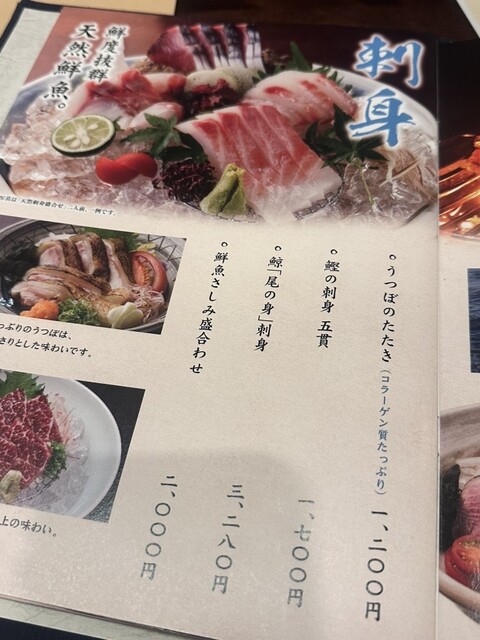 刺身
鮮度抜群
天然鮮魚。
うつぼのたたき（コラーゲン質たっぷり）一、二〇〇円
鰹の刺身 五貫 一、七〇〇円
鯨「尾の身」刺身 三、二八〇円
鮮魚さしみ盛合わせ 二、〇〇〇円
っぷりのうつぼは、
さりとした味わいです。
上の味わい。